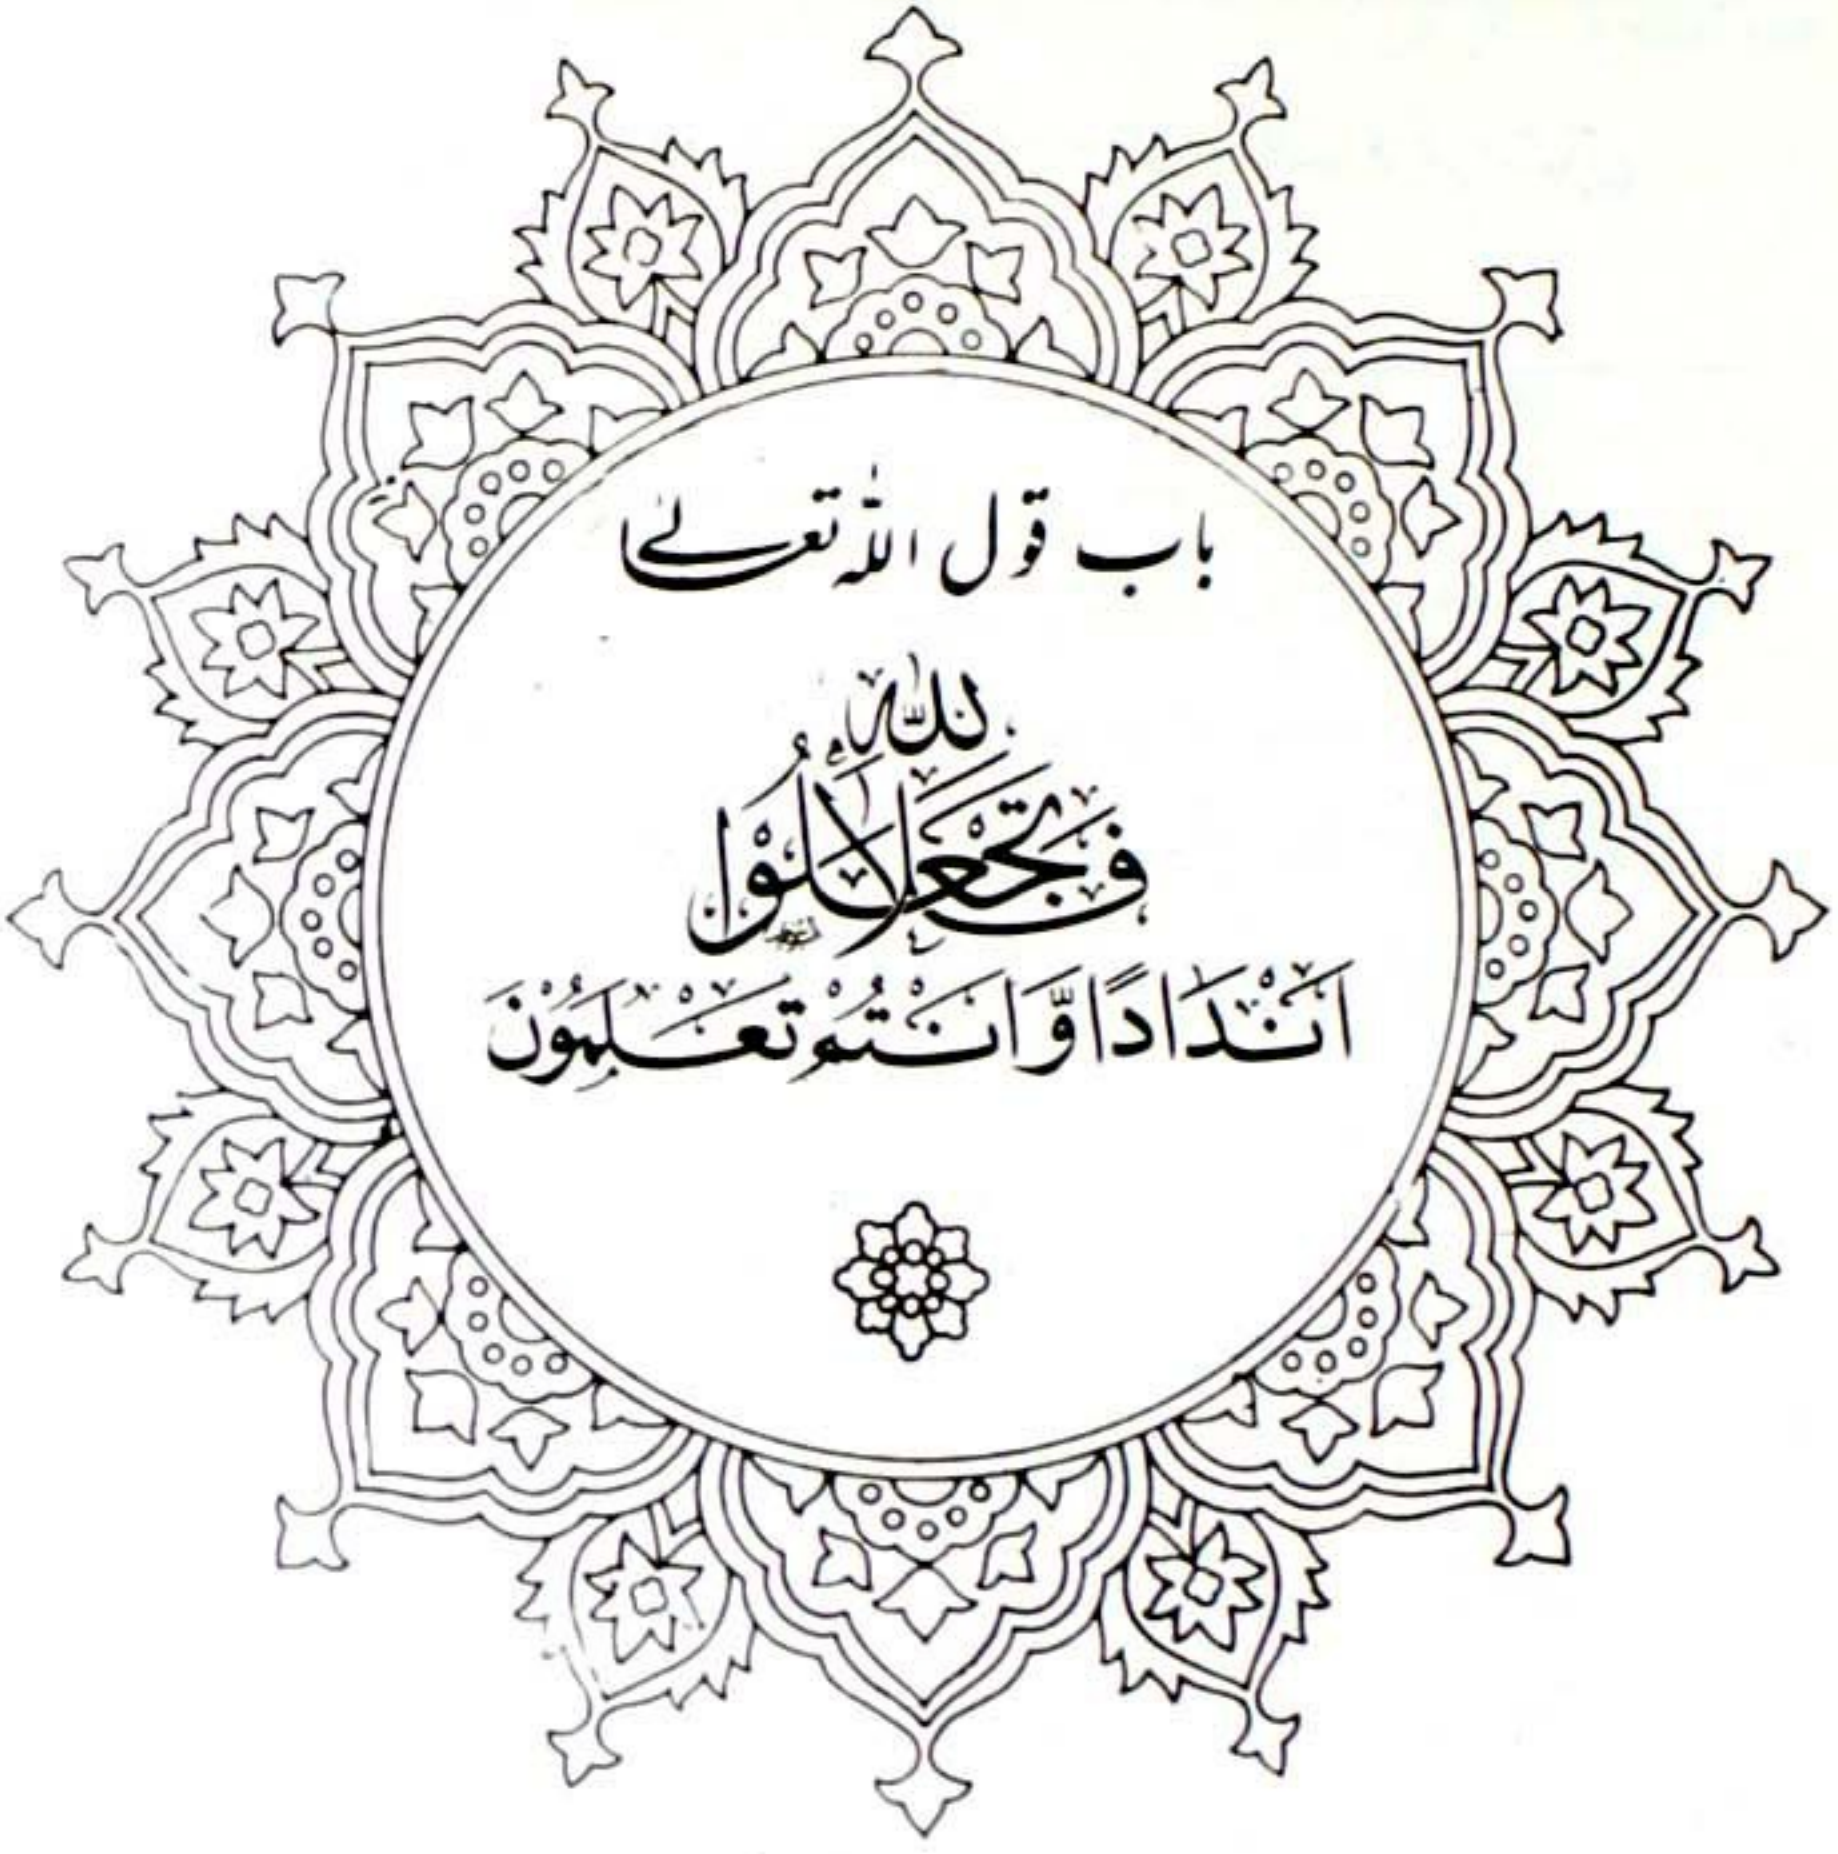 باب قول اللہ تعالیٰ
فَلَا تَجْعَلُوْا لِلّٰهِ
اَنْدَادًا وَّاَنْتُمْ تَعْلَمُوْنَ